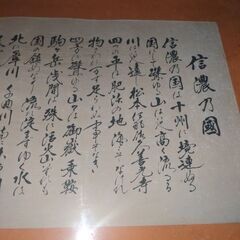 信濃乃國
信濃乃国は十州に境連ぬる
国にして聳ゆる山はいや高く流るる
川はいや遠し松本伊那佐久善光寺
四つの平は肥沃の地海こそなけれ
物さわに万足らわぬ事ぞなき
四方に聳ゆる山々は御嶽乗鞍
駒ヶ岳浅間は殊に活火山いづれも
国の鎮めなり流れ淀まずゆく水は
北に犀川千曲川南に木曽川